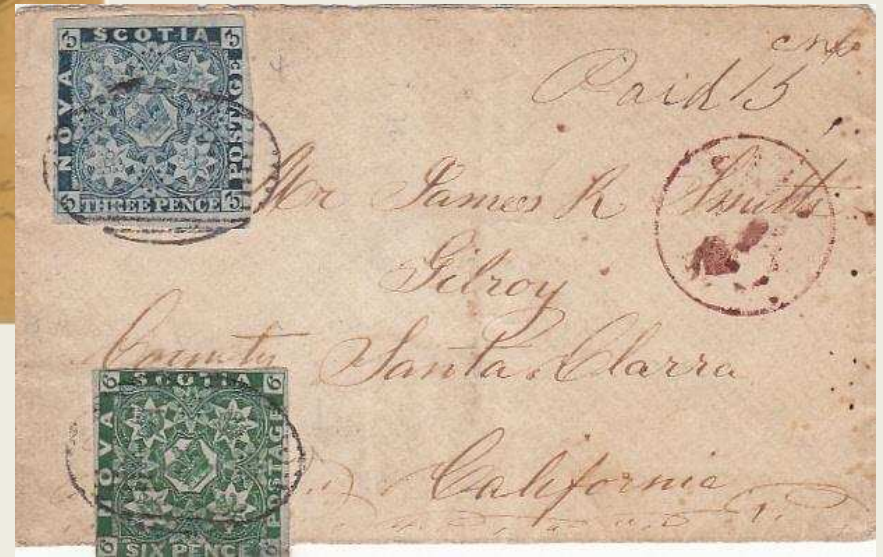 5 SCOTIA 5
NOVA
POSTAGE
5 THREE PENCE 5
cnts
Paid 15
Mr James R Smith
Gilroy
County Santa Clarra
California
6 SCOTIA 6
NOVA
POSTAGE
6 SIX PENCE 6